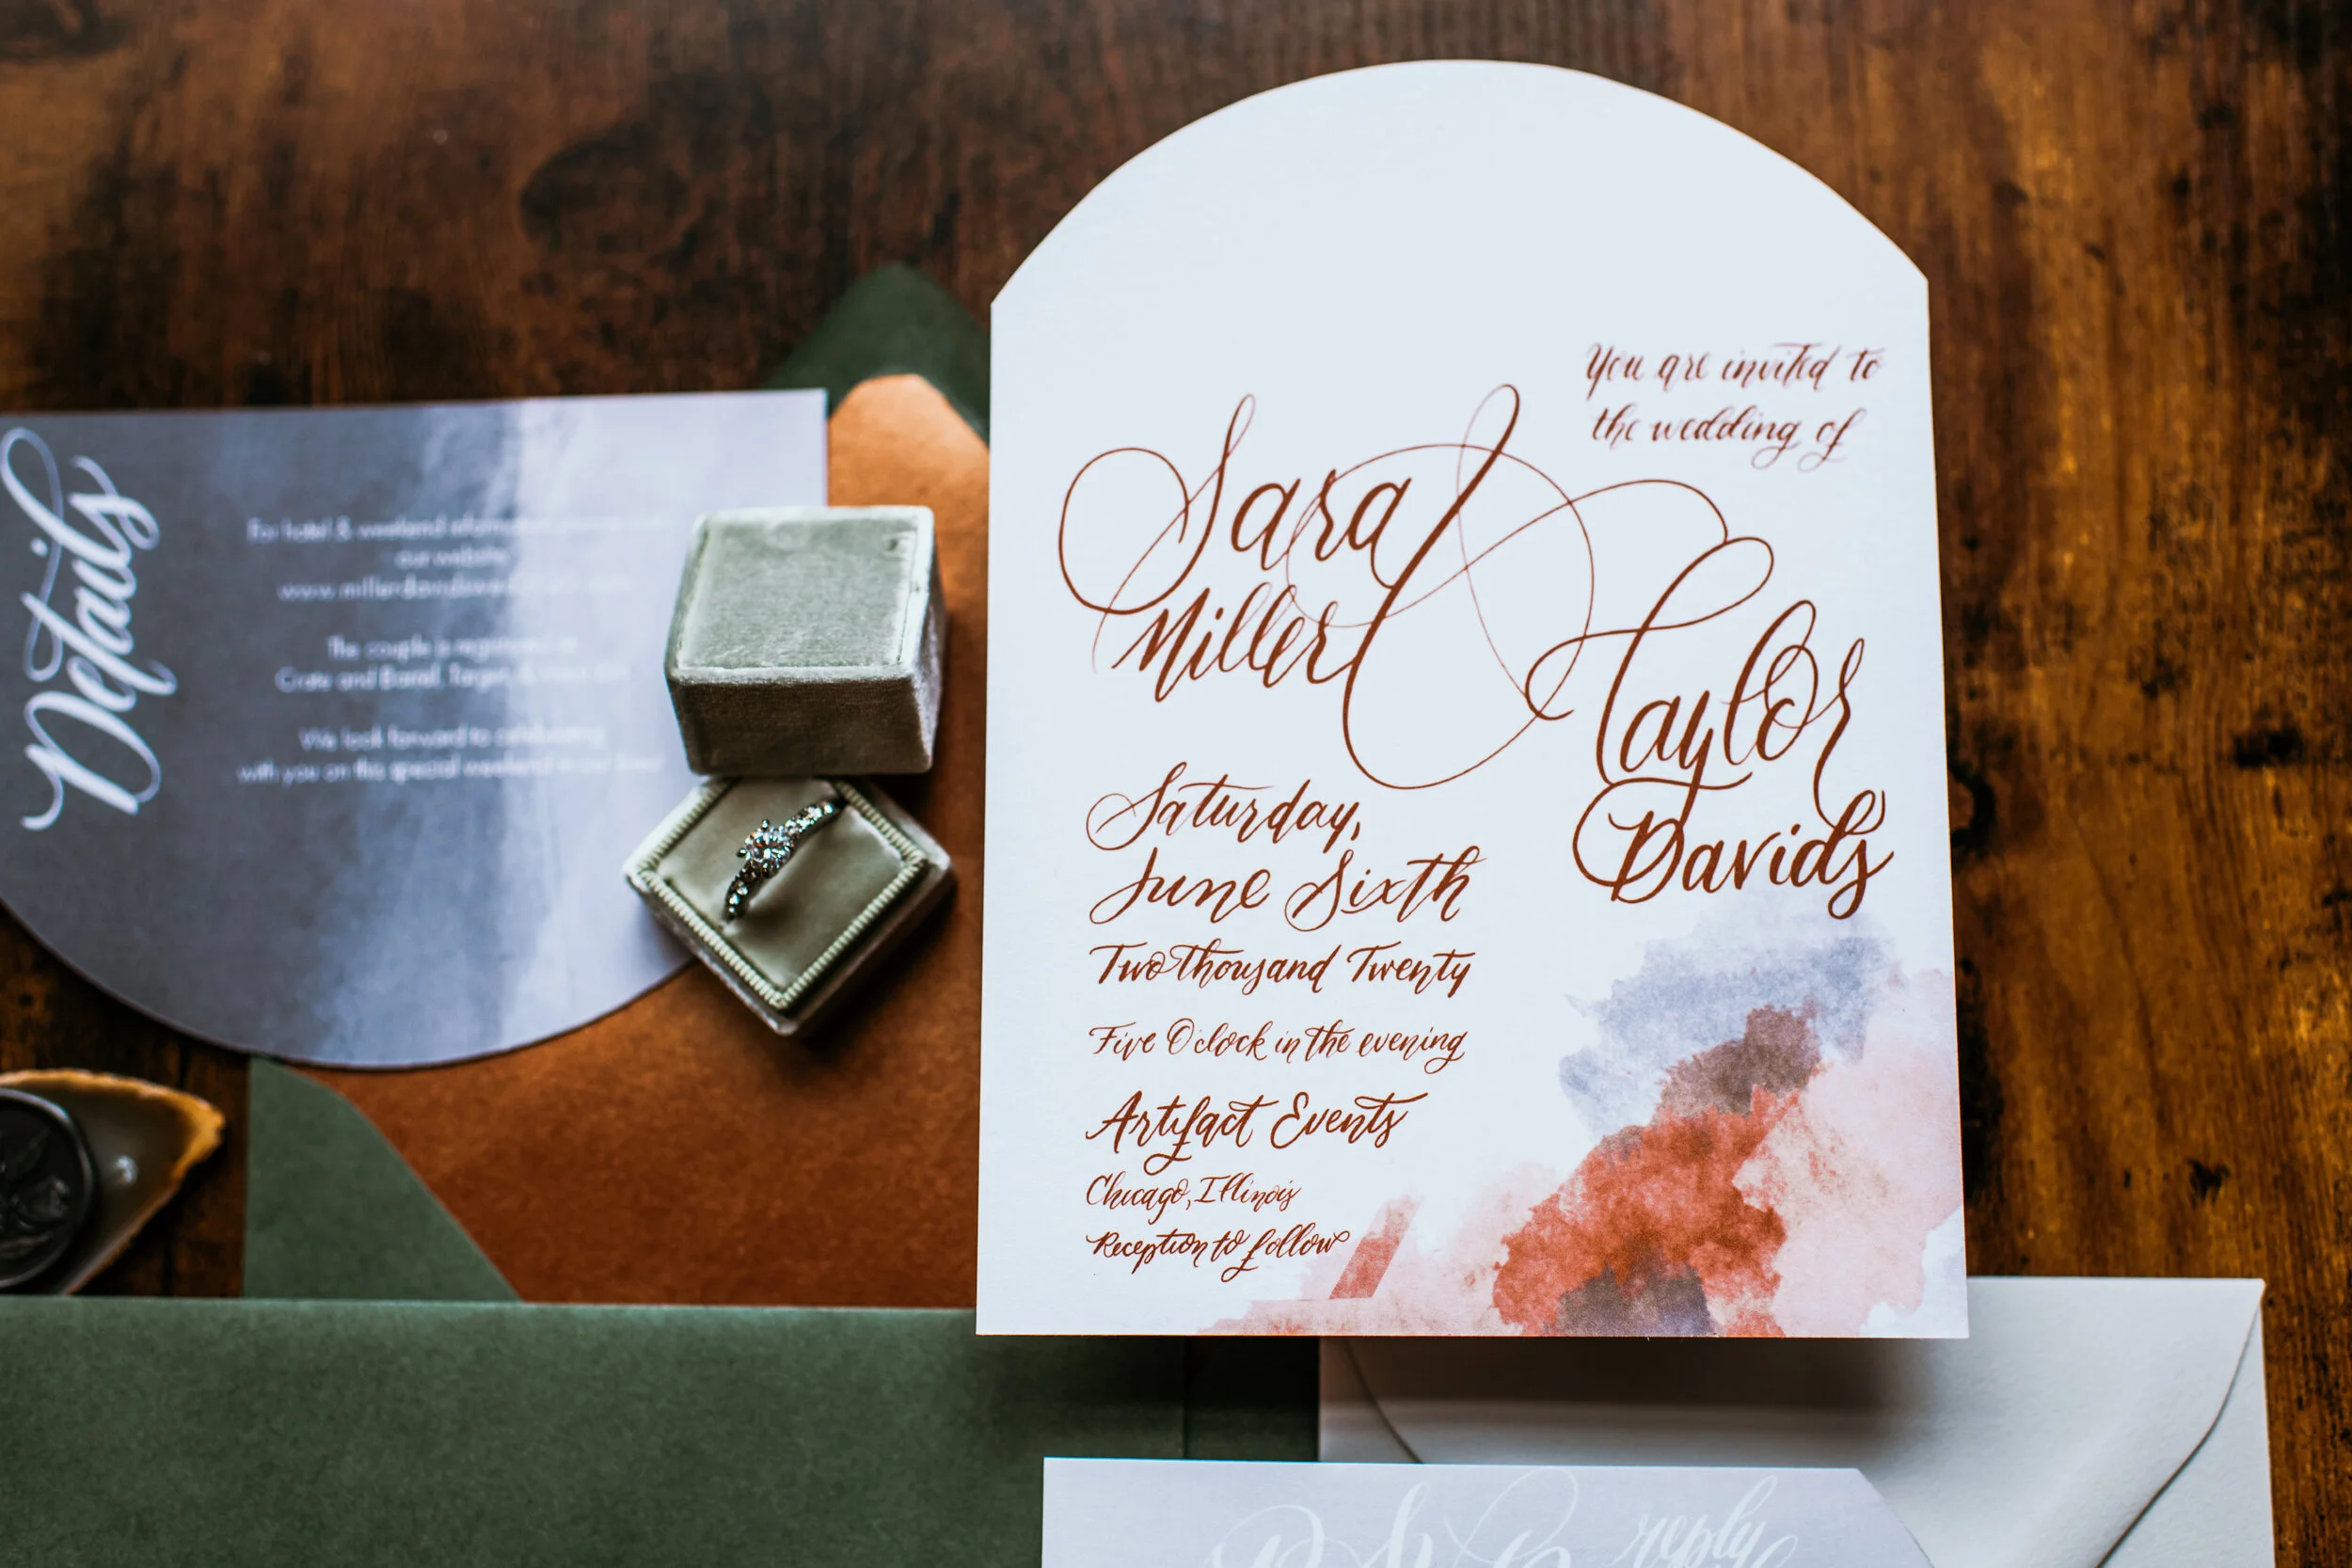 Details
For hotel & weekend information
our website
The couple is registered at
Crate and Barrel, Target, &
We look forward to celebrating
with you on this special weekend in our lives!
You are invited to
the wedding of
Sara
Miller
&
Taylor
Davids
Saturday,
June Sixth
Two Thousand Twenty
Five O'clock in the evening
Artifact Events
Chicago, Illinois
Reception to follow
reply